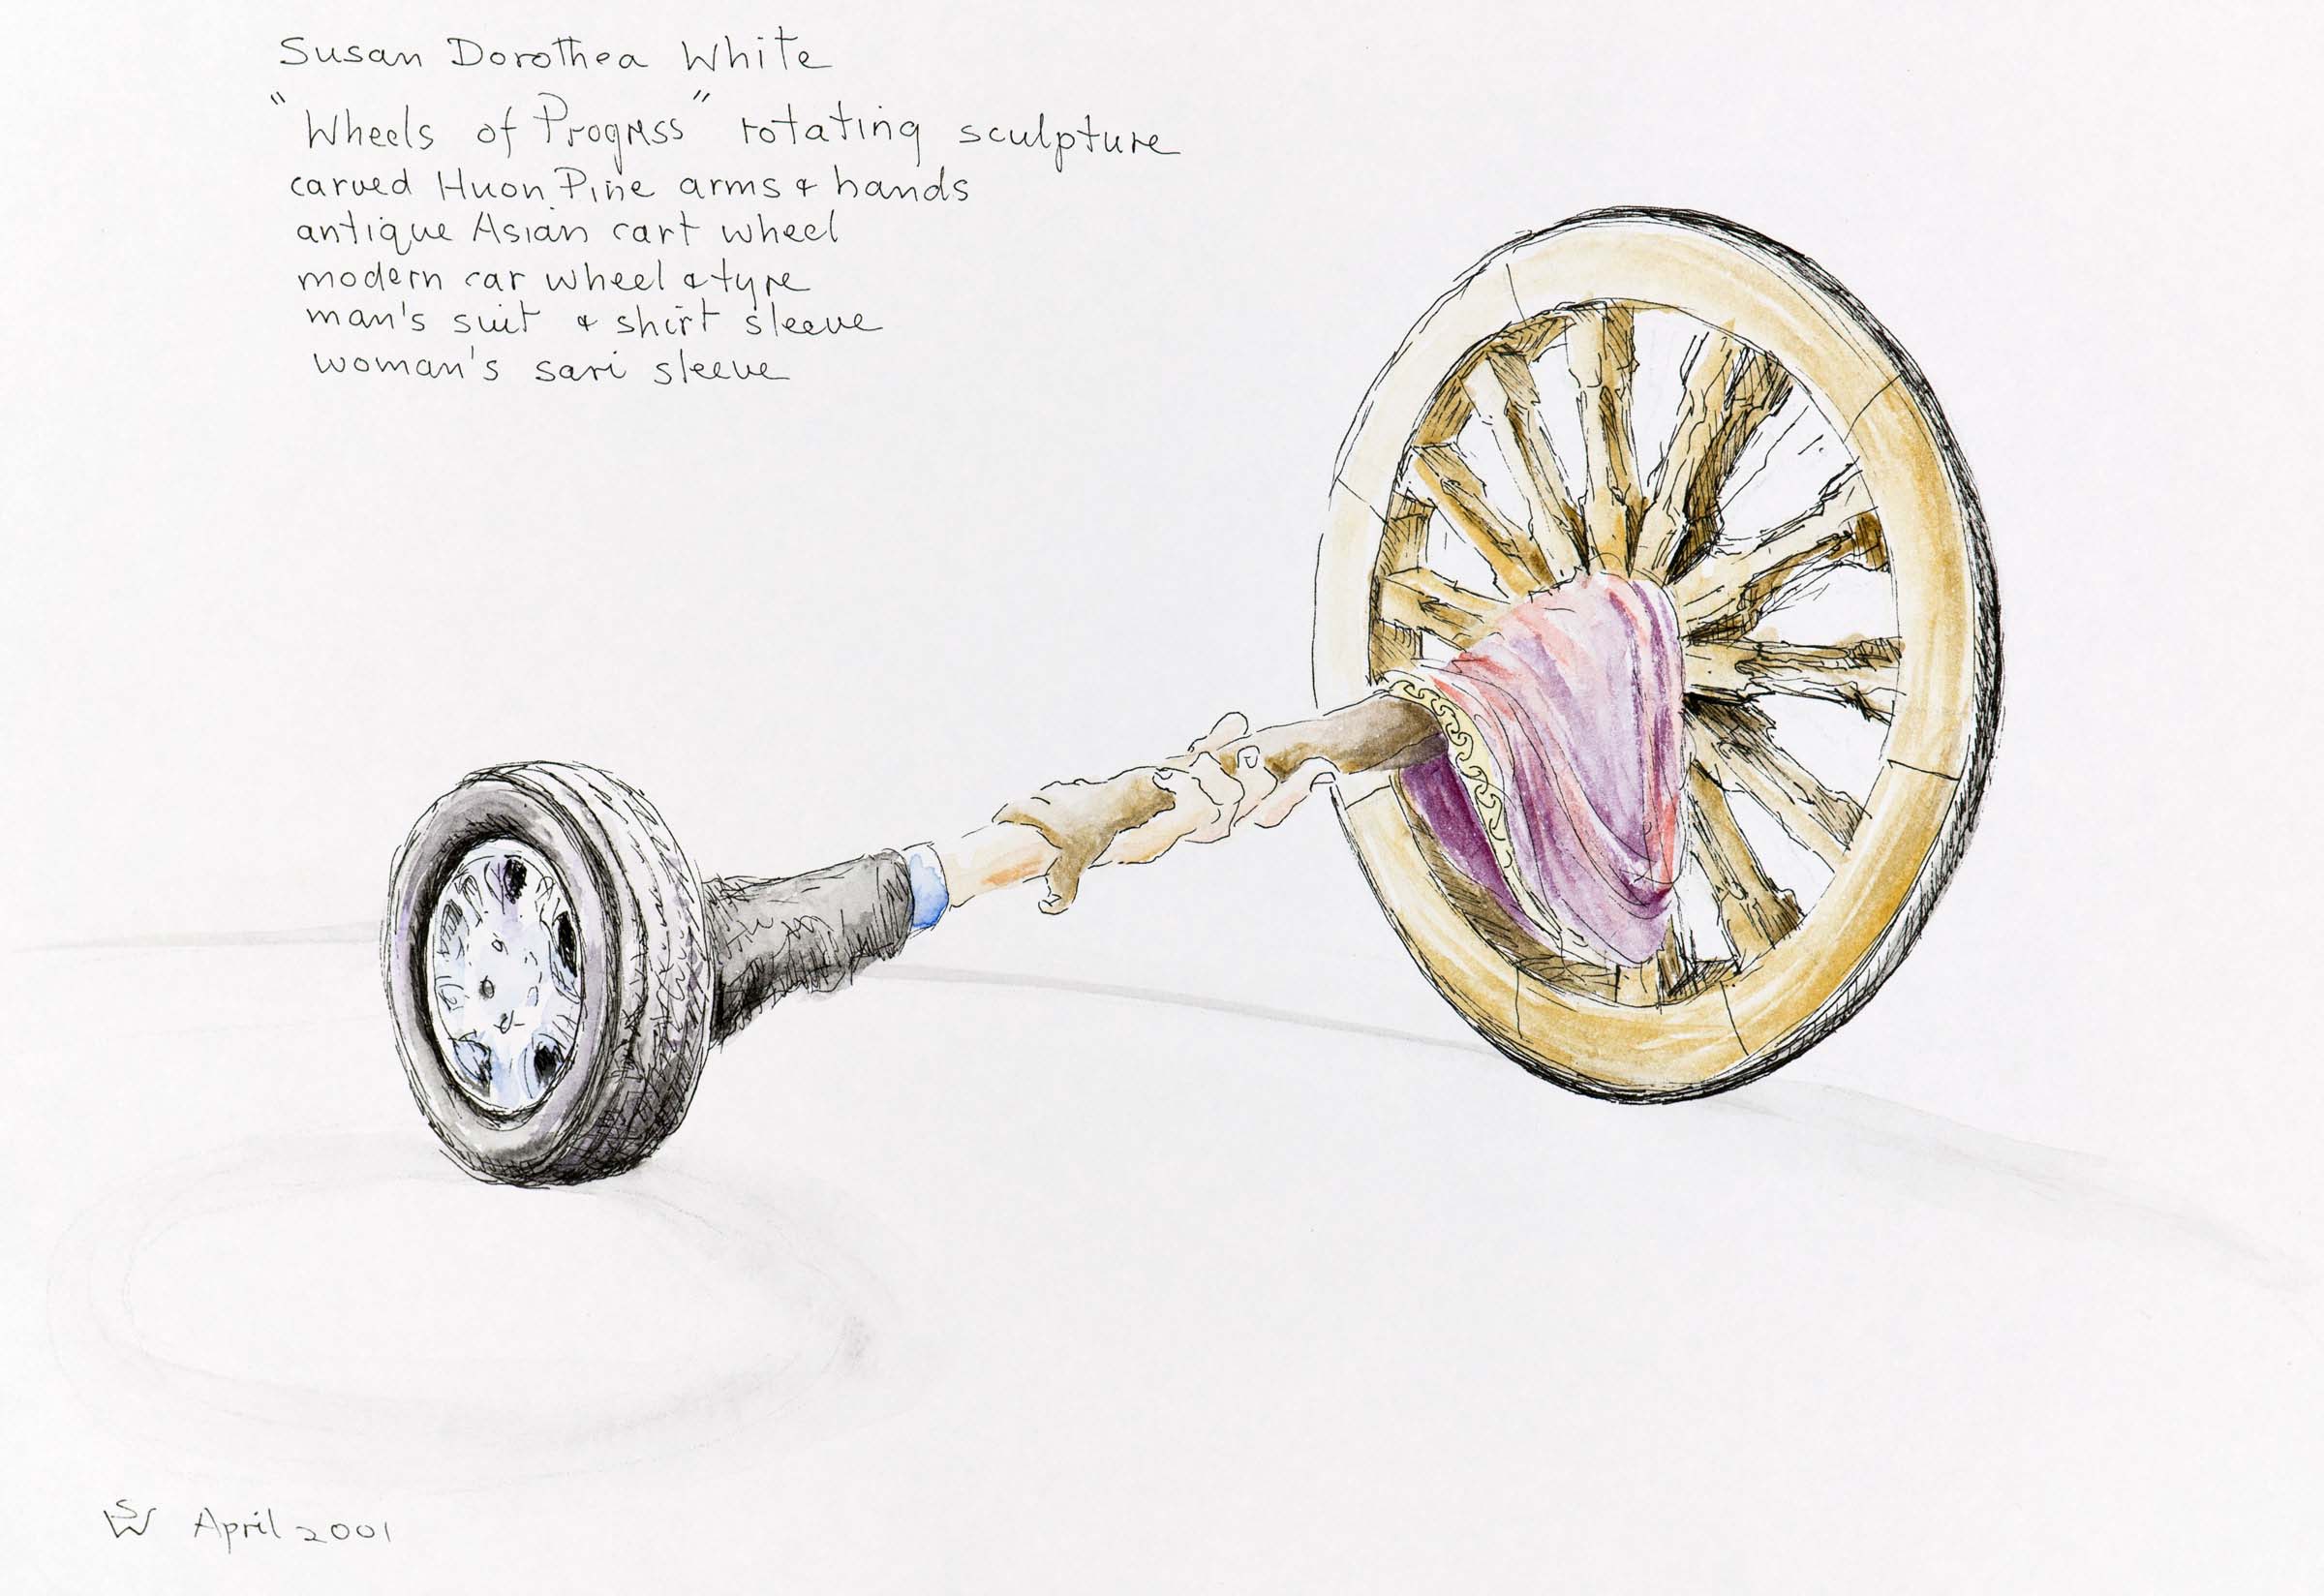 Susan Dorothea White
"Wheels of Progress" rotating sculpture
carved Huon Pine arms & hands
antique Asian cart wheel
modern car wheel & tyre
man's suit & shirt sleeve
woman's sari sleeve
SW April 2001